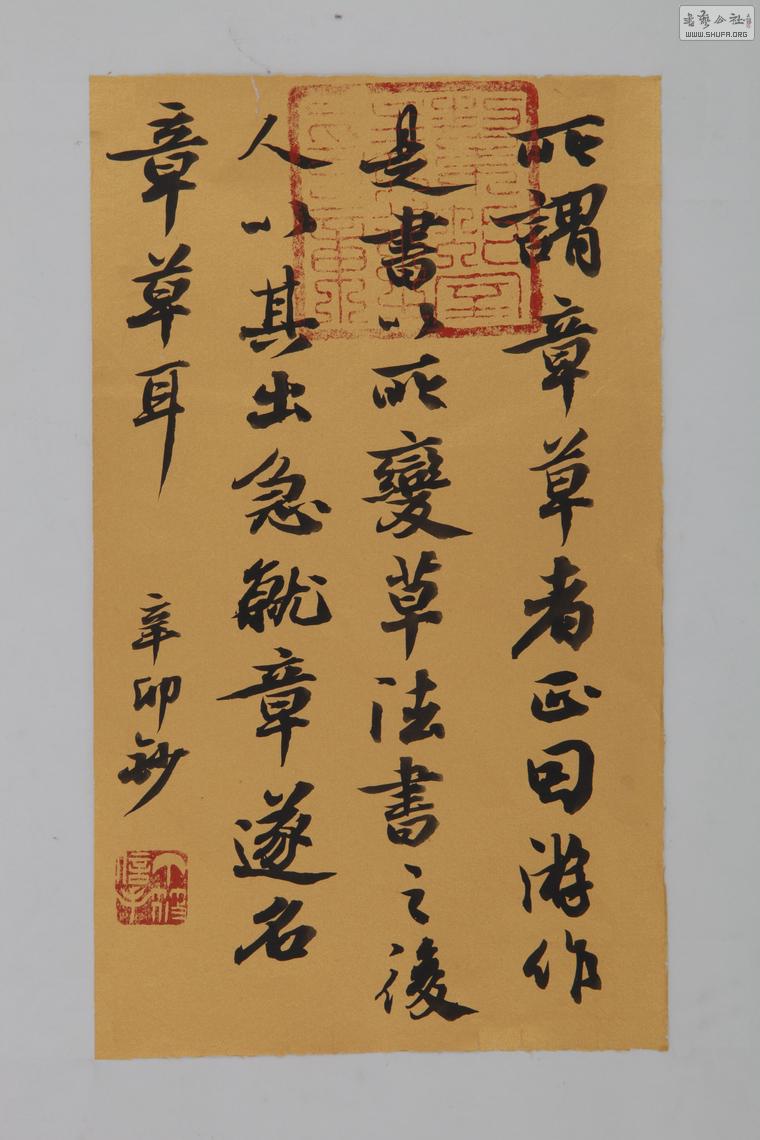 所謂章草者正因游作
是書以所變草法書之後
人以其出急就章遂名
章草耳
辛卯 鈔
書藝公社
WWW.SHUFA.ORG